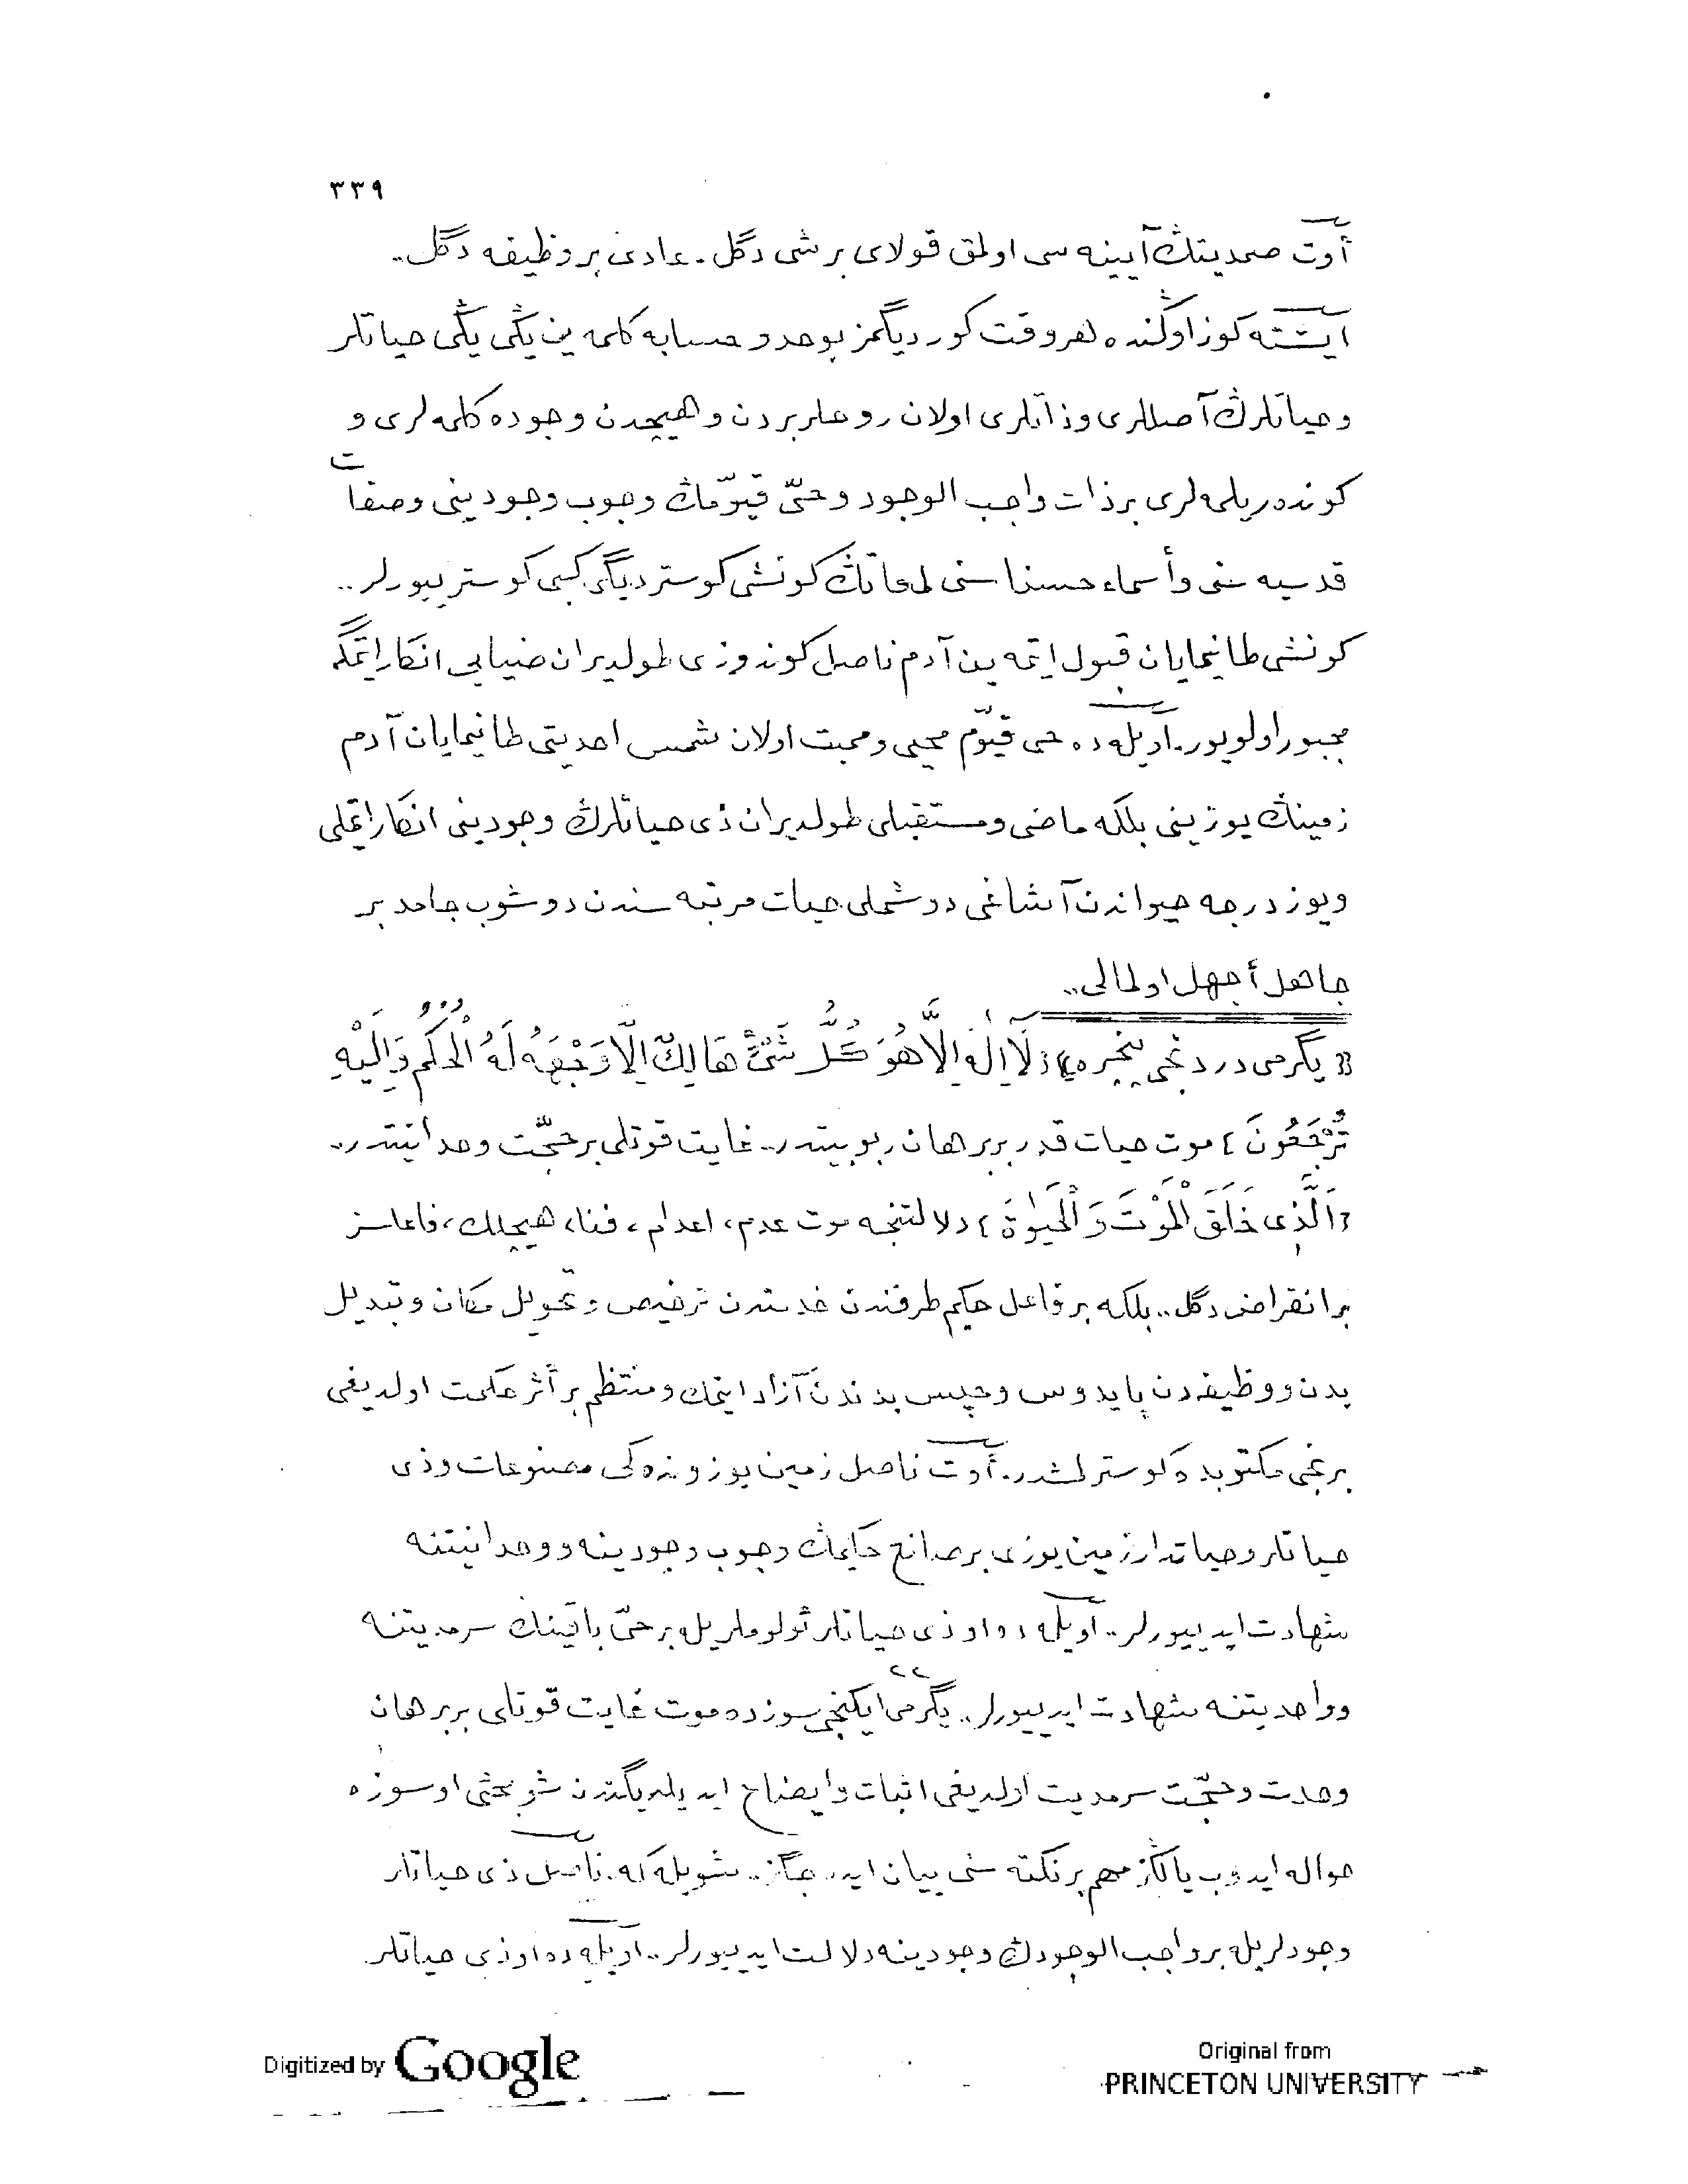 ٣٣٩
أوت صمديتڭ آيينه سى اولمق قولاى بر شى دگل. عادى بر وظيفه دگل..
ايشته كوز اوڭنده هر وقت كورديگمز بو حد و حسابه كلمه ين يڭى يڭى حياتلر
و حياتلرڭ آصللرى و ذاتلرى اولان روحلر بردن و هيچدن وجوده كلمه لرى و
كوندريلمه لرى بر ذات واجب الوجود و حىّ قيّومڭ وجوب وجودينى و صفات
قدسيه سنى و أسماء حسناسنى لمعاتڭ كونشى كوسترديگى كبى كوسترييورلر..
كونشى طانيمايان قبول ايتمه ين آدم ناصل كوندوزى طولديران ضيايى انكار ايتمگه
مجبور اولويور. اويله ده حى قيّوم محيى و مميت اولان شمس احديتى طانيمايان آدم
زمينڭ يوزينى بلكه ماضى و مستقبلى طولديران ذى حياتلرڭ وجودينى انكار ايتملى
و يوز درجه حيواندن آشاغى دوشملى حيات مرتبه سندن دوشوب جامد بر
جاهل أجهل اولمالى..
﴿ يگرمى دردنجى پنجره ﴾ ﴿ لَآ اِلٰهَ اِلَّا هُوَ كُلُّ شَىْءٍ هَالِكٌ اِلَّا وَجْهَهُ لَهُ الْحُكْمُ وَاِلَيْهِ
تُرْجَعُونَ ﴾ موت حيات قدر بر برهان ربوبيتدر.. غايت قوتلى بر حجّت وحدانيتدر..
﴿ اَلَّذِى خَلَقَ الْمَوْتَ وَالْحَيٰوةَ ﴾ دلالتنجه موت عدم، اعدام، فنا، هيچلك، فاعلسز
بر انقراض دگل.. بلكه بر فاعل حكيم طرفندن خدمتدن ترخيص و تحويل مكان و تبديل
بدن و وظيفه دن پايدوس و حپس بدندن آزاد ايتمك و منتظم بر أثر حكمت اولديغى
برنجى مكتوبده كوسترلمشدر. أوت ناصل زمين يوزونده كى مصنوعات و ذى
حياتلر و حياتدار زمين يوزى بر صانع حكيمڭ وجوب وجودينه و وحدانيتنه
شهادت ايدييورلر.. اويله ده او ذى حياتلر ئولوملريله بر حىّ باقينڭ سرمديتنه
و واحديتنه شهادت ايدييورلر.. يگرمى ايكنجى سوزده موت غايت قوتلى بر برهان
وحدت و حجّت سرمديت اولديغى اثبات و ايضاح ايديلديگندن شو بحثى او سوزه
حواله ايدوب يالڭز مهم بر نكته سنى بيان ايده جگز.. شويله كه. ناصل ذى حياتلر
وجودلريله بر واجب الوجودڭ وجودينه دلالت ايدييورلر.. اويله ده او ذى حياتلر
Digitized by Google
Original from
PRINCETON UNIVERSITY